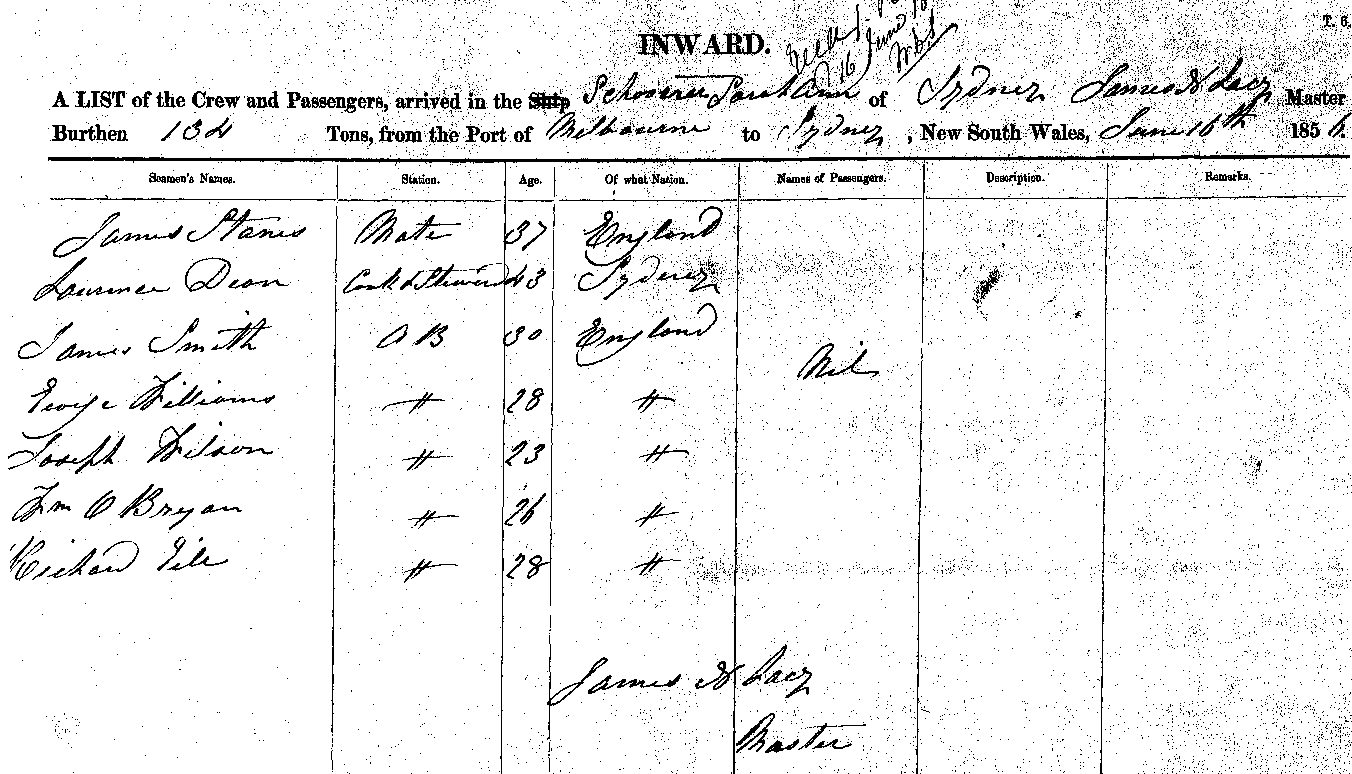 T. 6.
INWARD.
16 June
A LIST of the Crew and Passengers, arrived in the Ship Schooner Sarah Ann of Sydney James N Lacy Master
Burthen 134 Tons, from the Port of Melbourne to Sydney, New South Wales, June 16th 1856.
Seamen's Names. Station. Age. Of what Nation. Names of Passengers. Description. Remarks.
James Stanes Mate 37 England
Laurence Dean Cook & Steward 43 Sydney
James Smith A B 30 England
Nil
George Williams " 28 "
Joseph Wilson " 23 "
Wm O Bryan " 26 "
Richard " 28 "
James N Lacy
Master